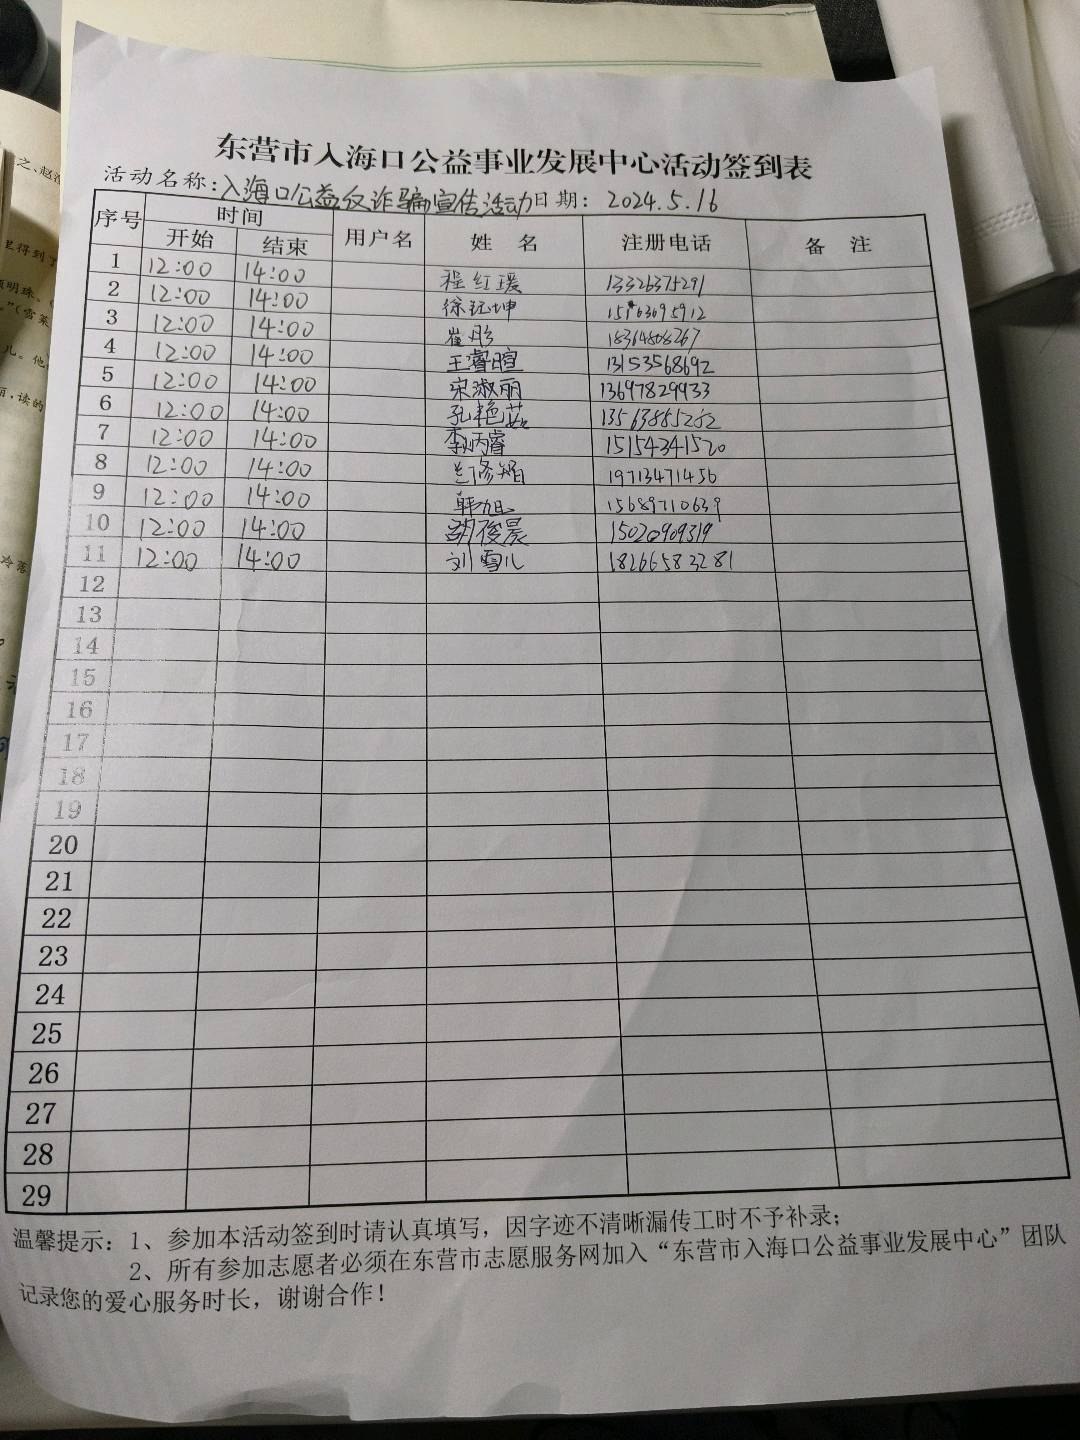 东营市入海口公益事业发展中心活动签到表
活动名称：入海口公益反诈骗宣传活动 日期： 2024.5.16
序号 时间 用户名 姓 名 注册电话 备 注
开始 结束
1 12:00 14:00 程红瑗 13326375291
2 12:00 14:00 徐 坤
3 12:00 14:00 崔彤 18364808267
4 12:00 14:00 王睿暄 13153568692
5 12:00 14:00 宋淑丽 13697829933
6 12:00 14:00 孔艳茹 13563885252
7 12:00 14:00 李炳睿 15154341520
8 12:00 14:00 兰修娟 19713471456
9 12:00 14:00 韩旭 15689710639
10 12:00 14:00 胡俊晨 15020909319
11 12:00 14:00 刘雪儿 18266583281
12
13
14
15
16
17
18
19
20
21
22
23
24
25
26
27
28
29
温馨提示：1、参加本活动签到时请认真填写，因字迹不清晰漏传工时不予补录；
2、所有参加志愿者必须在东营市志愿服务网加入“东营市入海口公益事业发展中心”团队
记录您的爱心服务时长，谢谢合作！